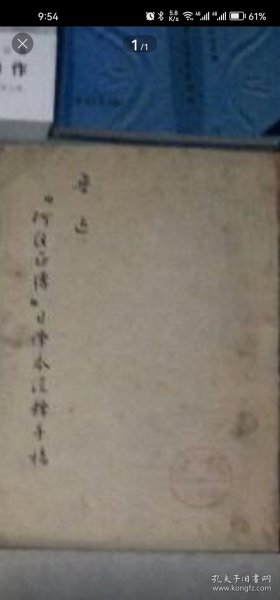 9:54
5.8
K/s
61%
1/1
作
鲁迅
"阿Q正传"日译本注释手稿
孔夫子旧书网
www.kongfz.com